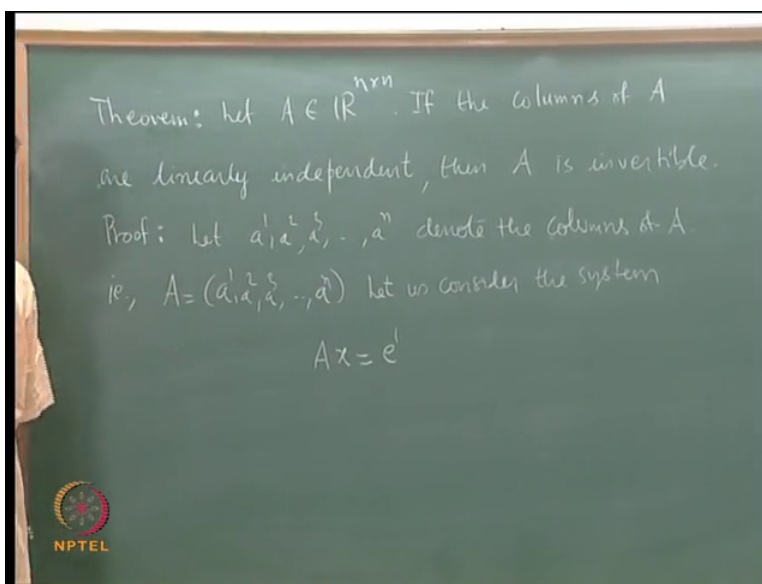 Theorem: Let A ∈ ℝⁿˣⁿ. If the columns of A
are linearly independent, then A is invertible.
Proof: Let a¹, a², a³, .., aⁿ denote the columns of A.
ie., A = (a¹, a², a³, .., aⁿ) Let us consider the system
Ax = e¹
NPTEL